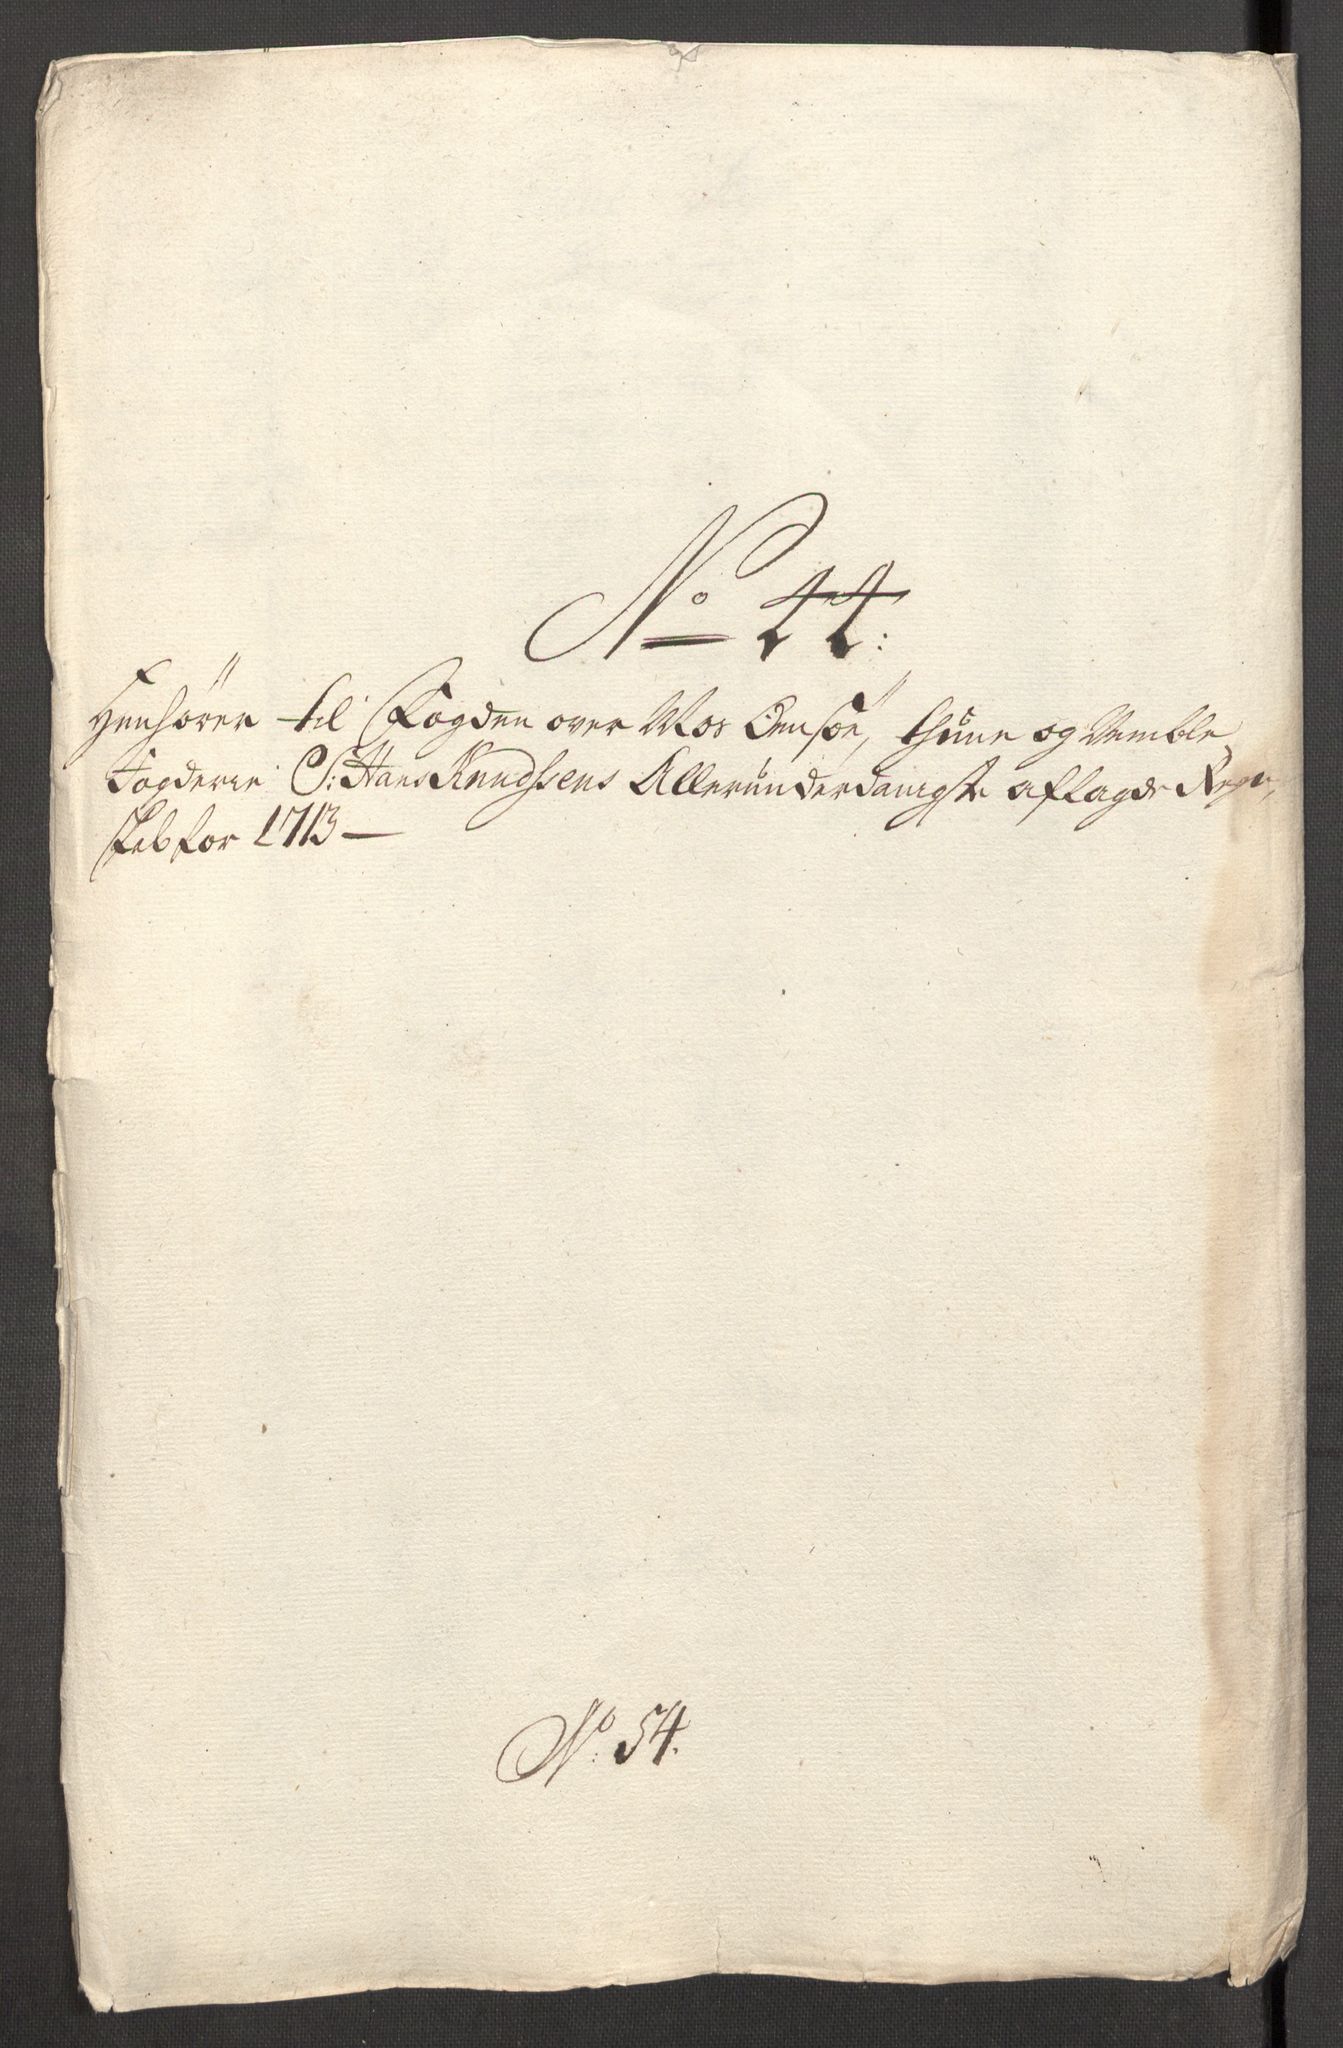 No 44:
Henhörer til Fogden over Mos Onsöe, thune og Vemble
Fogderie S: Hans Knudssens Allerunderdanigste aflagde Regn,
skab for 1713 —
No: 54.